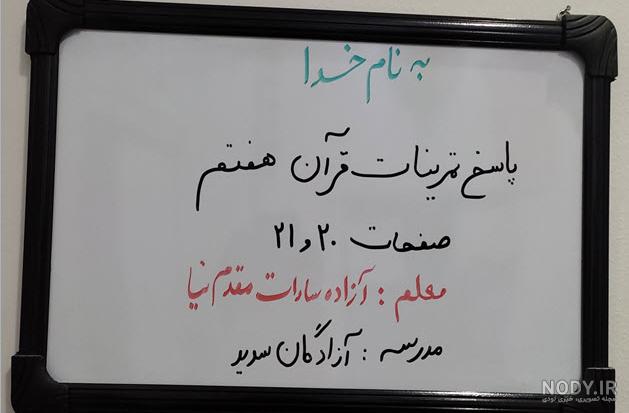 به نام خدا
پاسخ تمرینات قرآن هفتم
صفحات ۲۰ و ۲۱
معلم : آزاده سادات مقدم نیا
مدرسه : آزادگان سدید
NODY.IR
مجله تصویری، خبری نودی